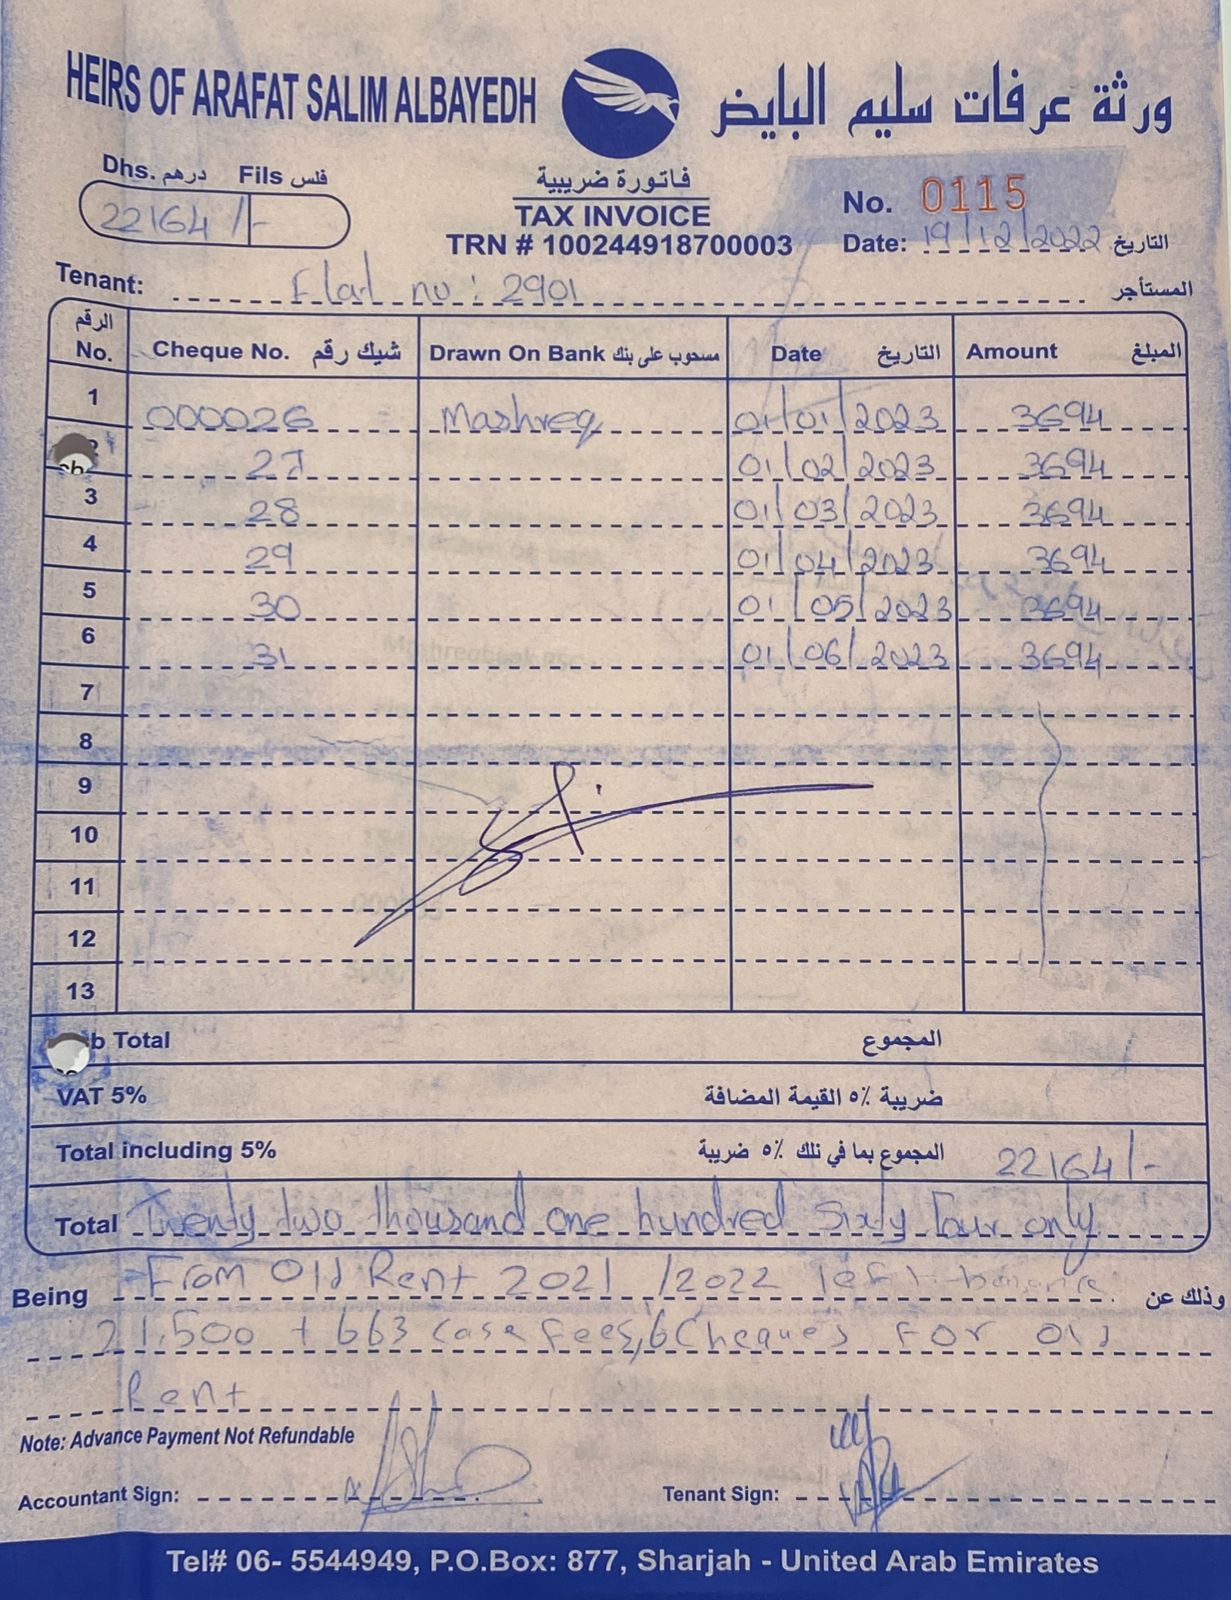 HEIRS OF ARAFAT SALIM ALBAYEDH
ورثة عرفات سليم البايض
Dhs. درهم Fils فلس
22164 /-
فاتورة ضريبية
TAX INVOICE
TRN # 100244918700003
No. 0115
Date: 19/12/2022 التاريخ
Tenant: Flat no : 2901 المستأجر
الرقم No. Cheque No. شيك رقم Drawn On Bank مسحوب على بنك Date التاريخ Amount المبلغ
1 000026 Mashreq 01/01/2023 3694
27 01/02/2023 3694
3 28 01/03/2023 3694
4 29 01/04/2023 3694
5 30 01/05/2023 3694
6 31 01/06/2023 3694
7
8
9
10
11
12
13
b Total المجموع
VAT 5% ضريبة ٥٪ القيمة المضافة
Total including 5% المجموع بما في ذلك ٥٪ ضريبة 22164/-
Total Twenty two thousand one hundred Sixty Four only
Being From Old Rent 2021 /2022 left وذلك عن
21.500 + 663 case fees, 6 Cheques For Old
Rent
Note: Advance Payment Not Refundable
Accountant Sign: Tenant Sign:
Tel# 06- 5544949, P.O.Box: 877, Sharjah - United Arab Emirates